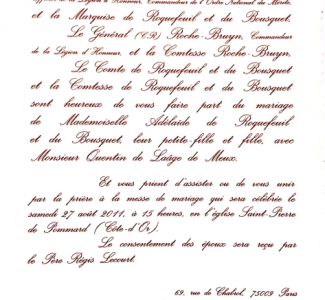 Officier de la Légion d'Honneur, Commandeur de l'Ordre National du Mérite,
et la Marquise de Roquefeuil et du Bousquet,
Le Général (CR) Roche-Bruyn, Commandeur
de la Légion d'Honneur, et la Comtesse Roche-Bruyn,
Le Comte de Roquefeuil et du Bousquet
et la Comtesse de Roquefeuil et du Bousquet
sont heureux de vous faire part du mariage
de Mademoiselle Adélaïde de Roquefeuil
et du Bousquet, leur petite-fille et fille, avec
Monsieur Quentin de Laâge de Meux.
Et vous prient d'assister ou de vous unir
par la prière à la messe de mariage qui sera célébrée le
samedi 27 août 2011, à 15 heures, en l'église Saint-Pierre
de Pommard (Côte-d'Or).
Le consentement des époux sera reçu par
le Père Régis Lecourt.
69, rue de Chabrol, 75009 Paris